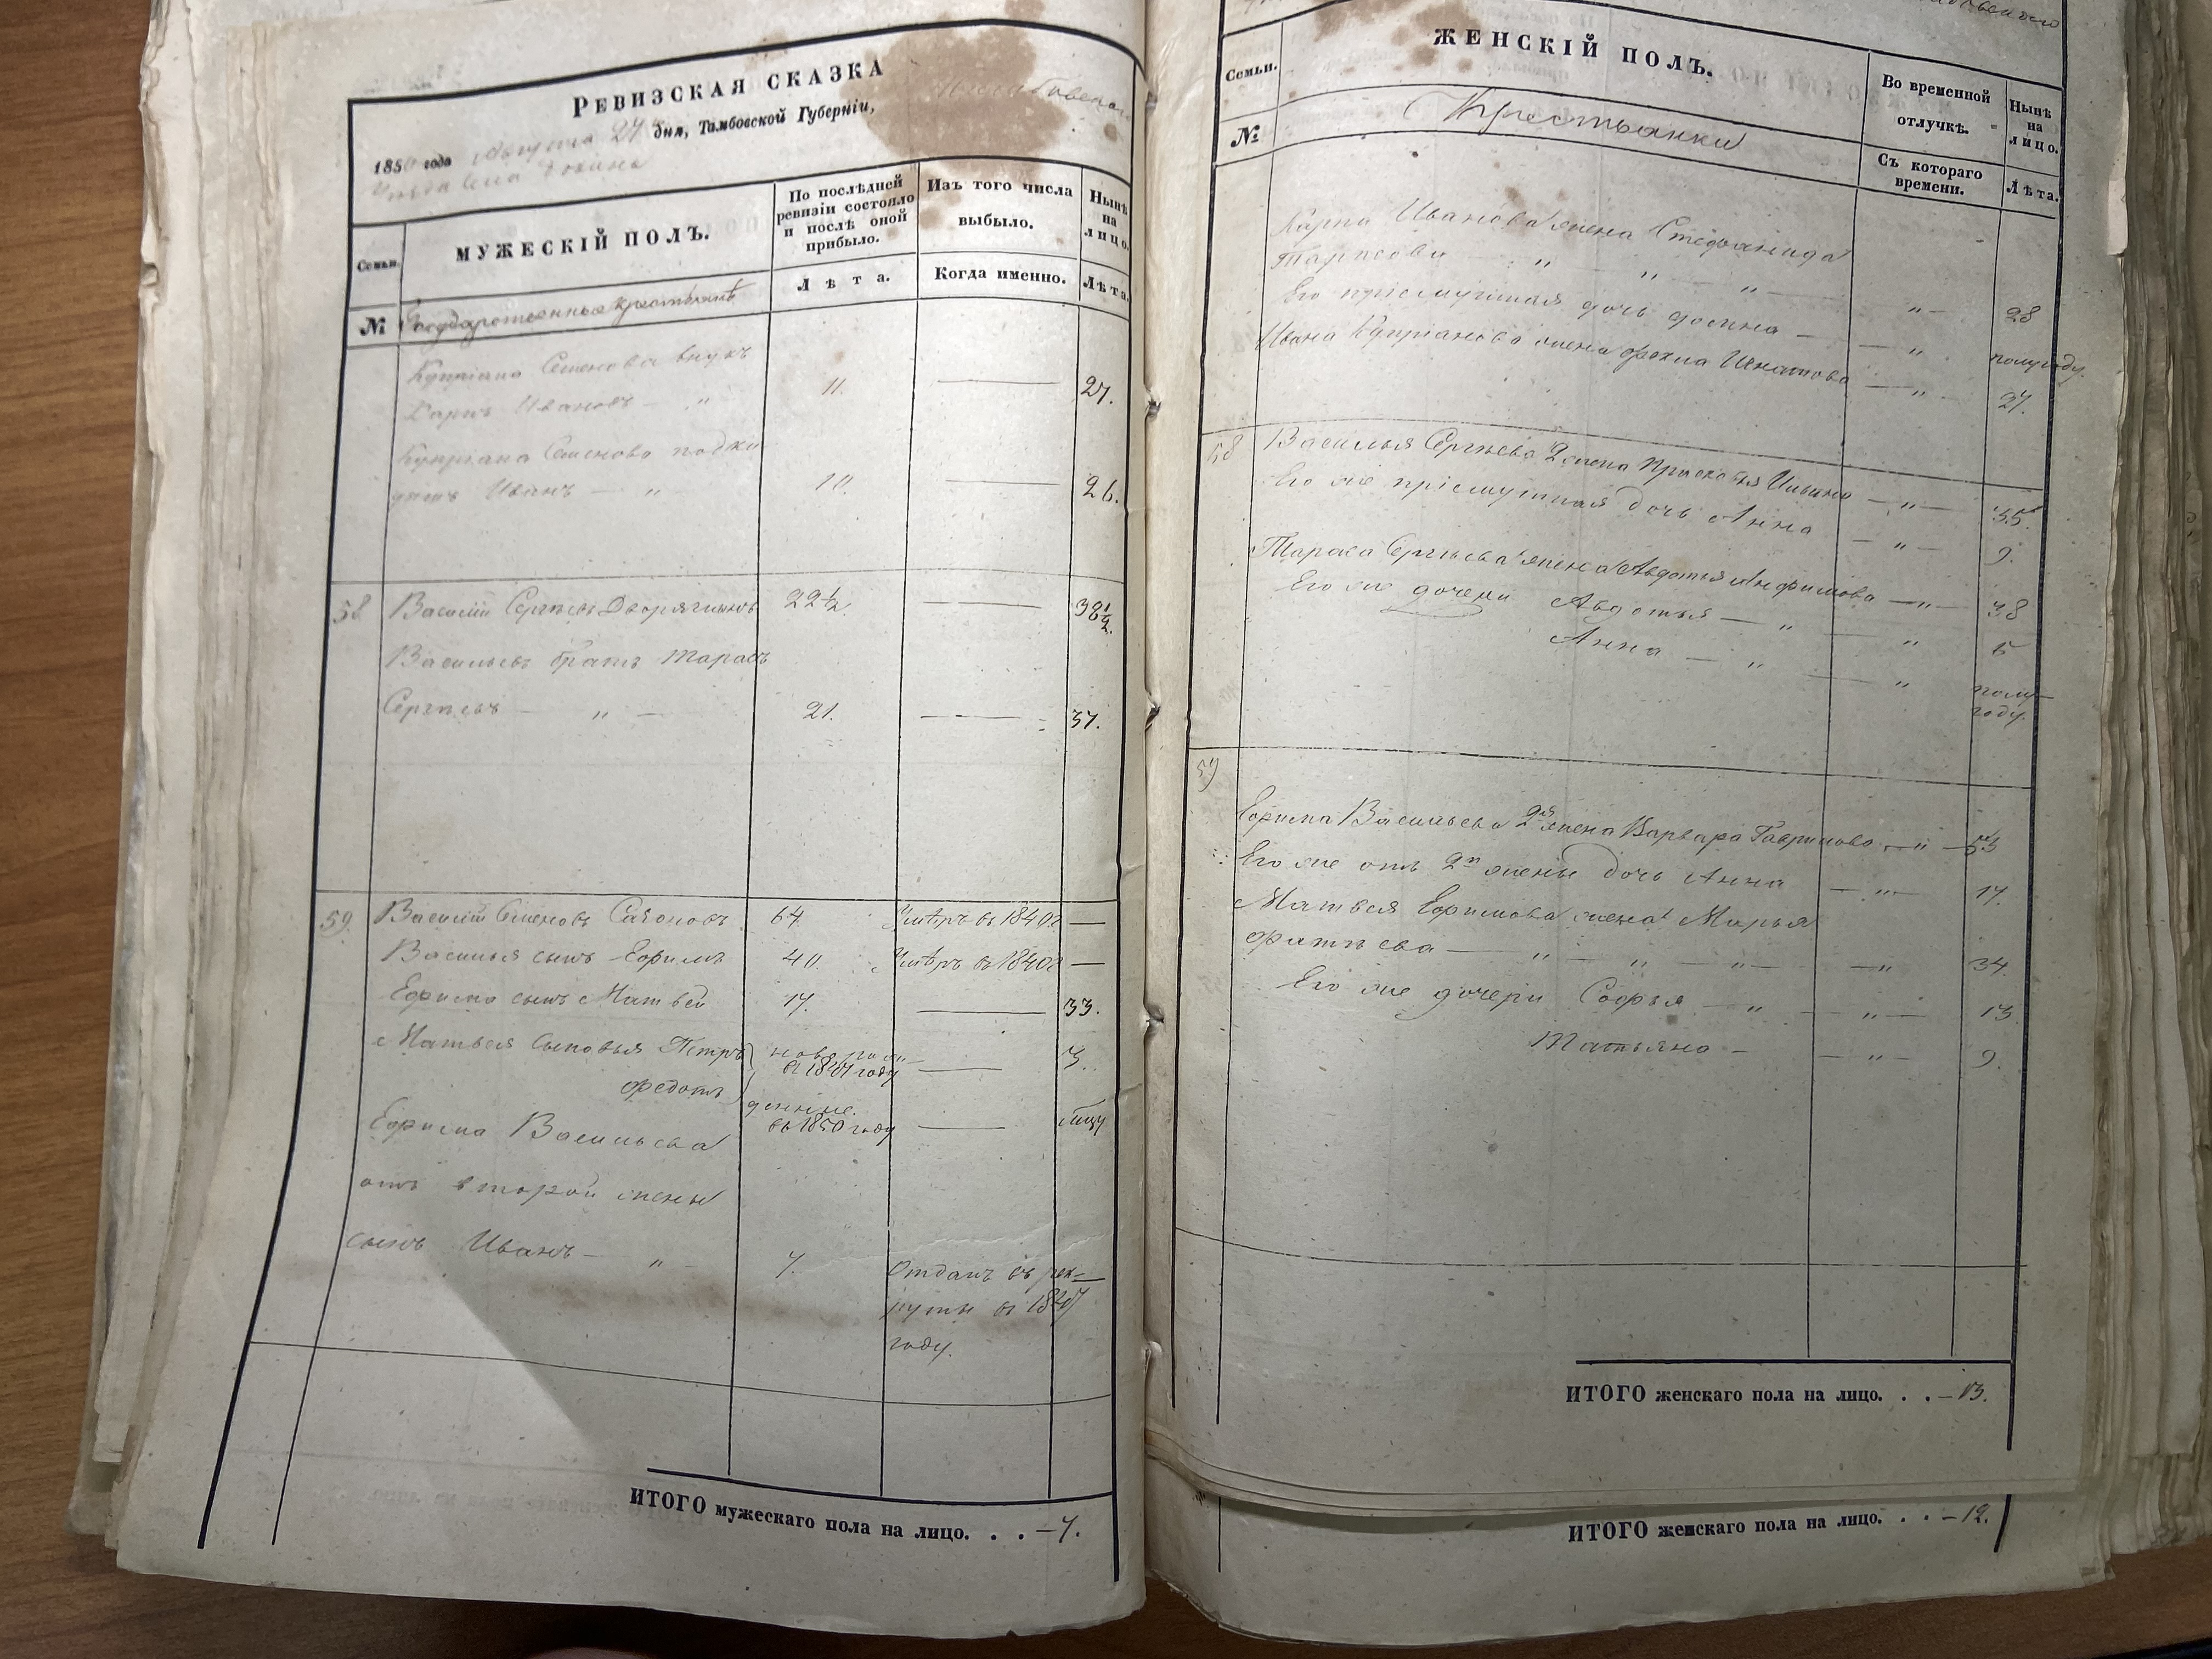 РЕВИЗСКАЯ СКАЗКА
1850 года Августа 27 дня, Тамбовской Губерніи,
Уезда села
Семьи.
МУЖЕСКІЙ ПОЛЪ.
По послѣдней ревизіи состояло и послѣ оной прибыло.
Изъ того числа выбыло.
Нынѣ на лицо.
№
Государственные крестьяне
Лѣта.
Когда именно.
Лѣта.
Купріана Семенова внукъ
Карпъ Ивановъ — " 11. — 27.
Купріана Семенова подки
дышъ Иванъ — " 10. — 26.
58 Василій Сергѣевъ Дворягинковъ 22½ — 38½.
Васильевъ братъ Тарасъ
Сергѣевъ — " — 21. — 37.
59 Василій Семеновъ Сафоновъ 64 Умѣръ въ 1840г —
Василья сынъ Ефимъ 40. Умѣръ въ 1840г —
Ефима сынъ Матвей 17. — 33.
Матвея сыновья Петръ новорож
въ 1847 году — 3.
Федотъ
денные.
въ 1850 году —
Ефима Васильева
отъ второй жены
сынъ Иванъ — " 7. Отданъ въ рек-
руты въ 1847
году.
ИТОГО мужескаго пола на лицо. . . — 7.
Семьи.
ЖЕНСКІЙ ПОЛЪ.
Во временной отлучкѣ.
Нынѣ на лицо.
№
Крестьянки
Съ котораго времени.
Лѣта.
Карпа Иванова жена Стефанида
Тарасова " — " — " — " — 28
Его прісмушная дочь — " полугоду.
Ивана Купріанова жена Фекла Игнатова — " — 27.
58 Василья Сергѣева 2 жена Прасковья Ильина — " — 35
Его же прісмушная дочь Анна — " — 9.
Тараса Сергѣева жена Авдотья Анфимова — " — 38
Его же дочери Авдотья — " — " 5
Анна — " — " полу-
году.
59
Ефима Васильева 2я жена Варвара Гаврилова — " — 53
Его же отъ 2й жены дочь Анна — " — 17.
Матвея Ефимова жена Марья
Фатѣева — " — " — " — " 34.
Его же дочери Софья — " — " — 13
Татьяна — — " — 9.
ИТОГО женскаго пола на лицо. . . — 13.
ИТОГО женскаго пола на лицо. . . — 12.